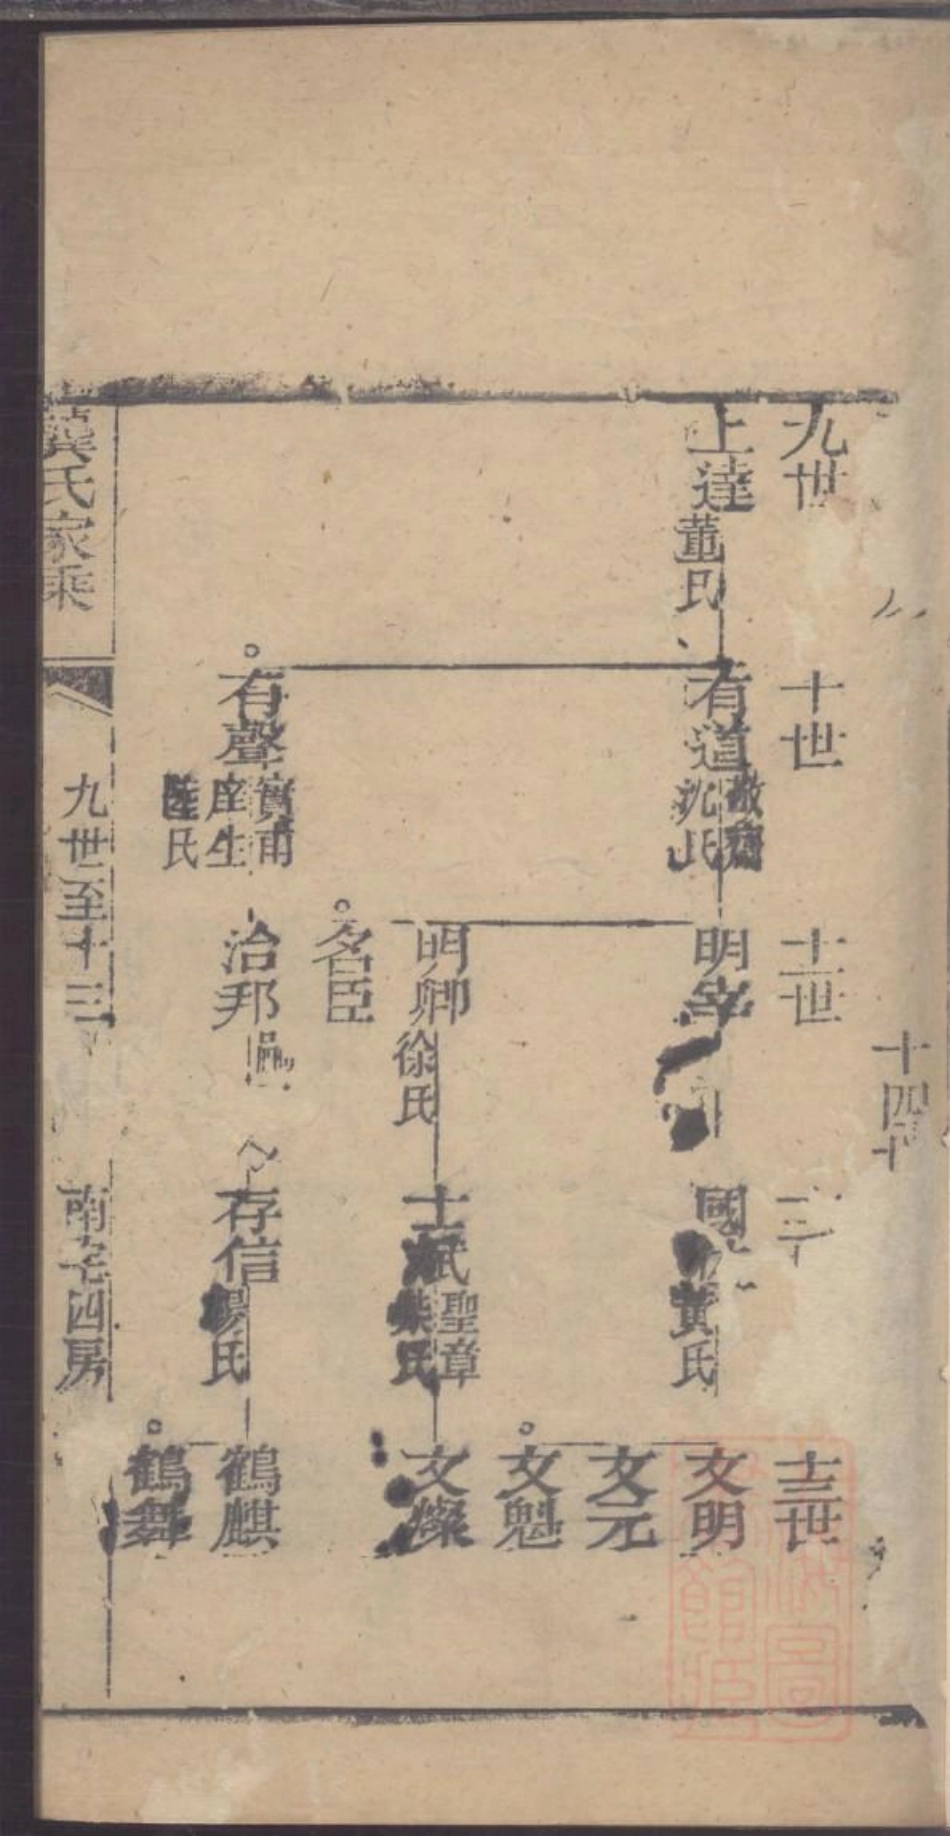 九世
十世
十一世
十三世
上達董氏
有道
沈氏
明宰
國
黃氏
文明
文元
文魁
明卿徐氏
士
聖章
柴氏
文燦
名臣
有聲
實甫
庠生
陸氏
治邦
存信楊氏
鶴麒
鶴舞
龔氏家乘
九世至十三
南宅四房